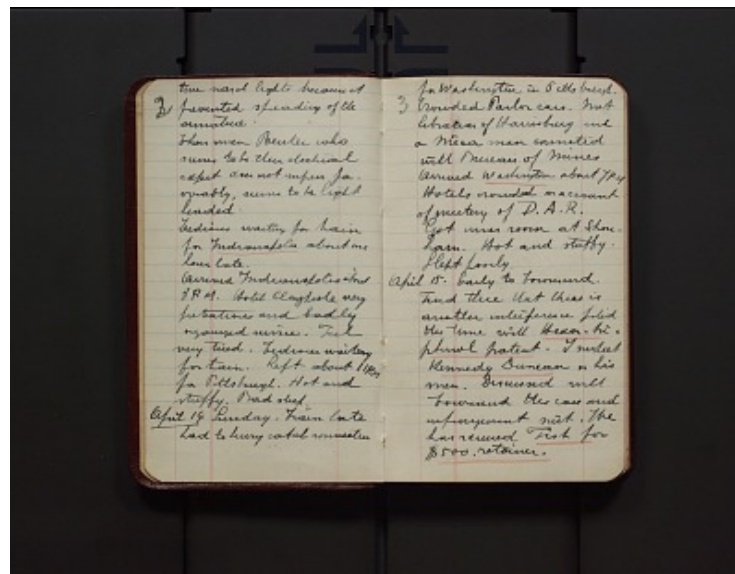 because it
prevented spreading of the
armature.
man who
seems to be their electrical
expert does not impress fa-
vorably, seems to be light
headed.
Tedious waiting for train
for Indianapolis about one
hour late.
Arrived Indianapolis about
P.M. Hotel Claypole very
pretentious and badly
organized service. Feel
very tired. Tedious waiting
for train. Left about
for Pittsburgh. Hot and
stuffy. Bad sleep.
April 14 Sunday. Train late
had to hurry catch connection
for Washington in Pittsburgh.
3 Crowded Parlor cars.
of Harrisburg and
a man connected
with Bureau of Mines
Arrived Washington about 7 PM
Hotels crowded on account
of meeting of D.A.R.
Got room at Shore-
ham. Hot and stuffy.
Slept poorly.
April 15. Early to Townsend.
Find there that there is
another interference filed
this time with
phenol patent. I
Kennedy Duncan or his
men. Discussed with
Townsend this case and
suit. He
has Fish for
$500. retainer.